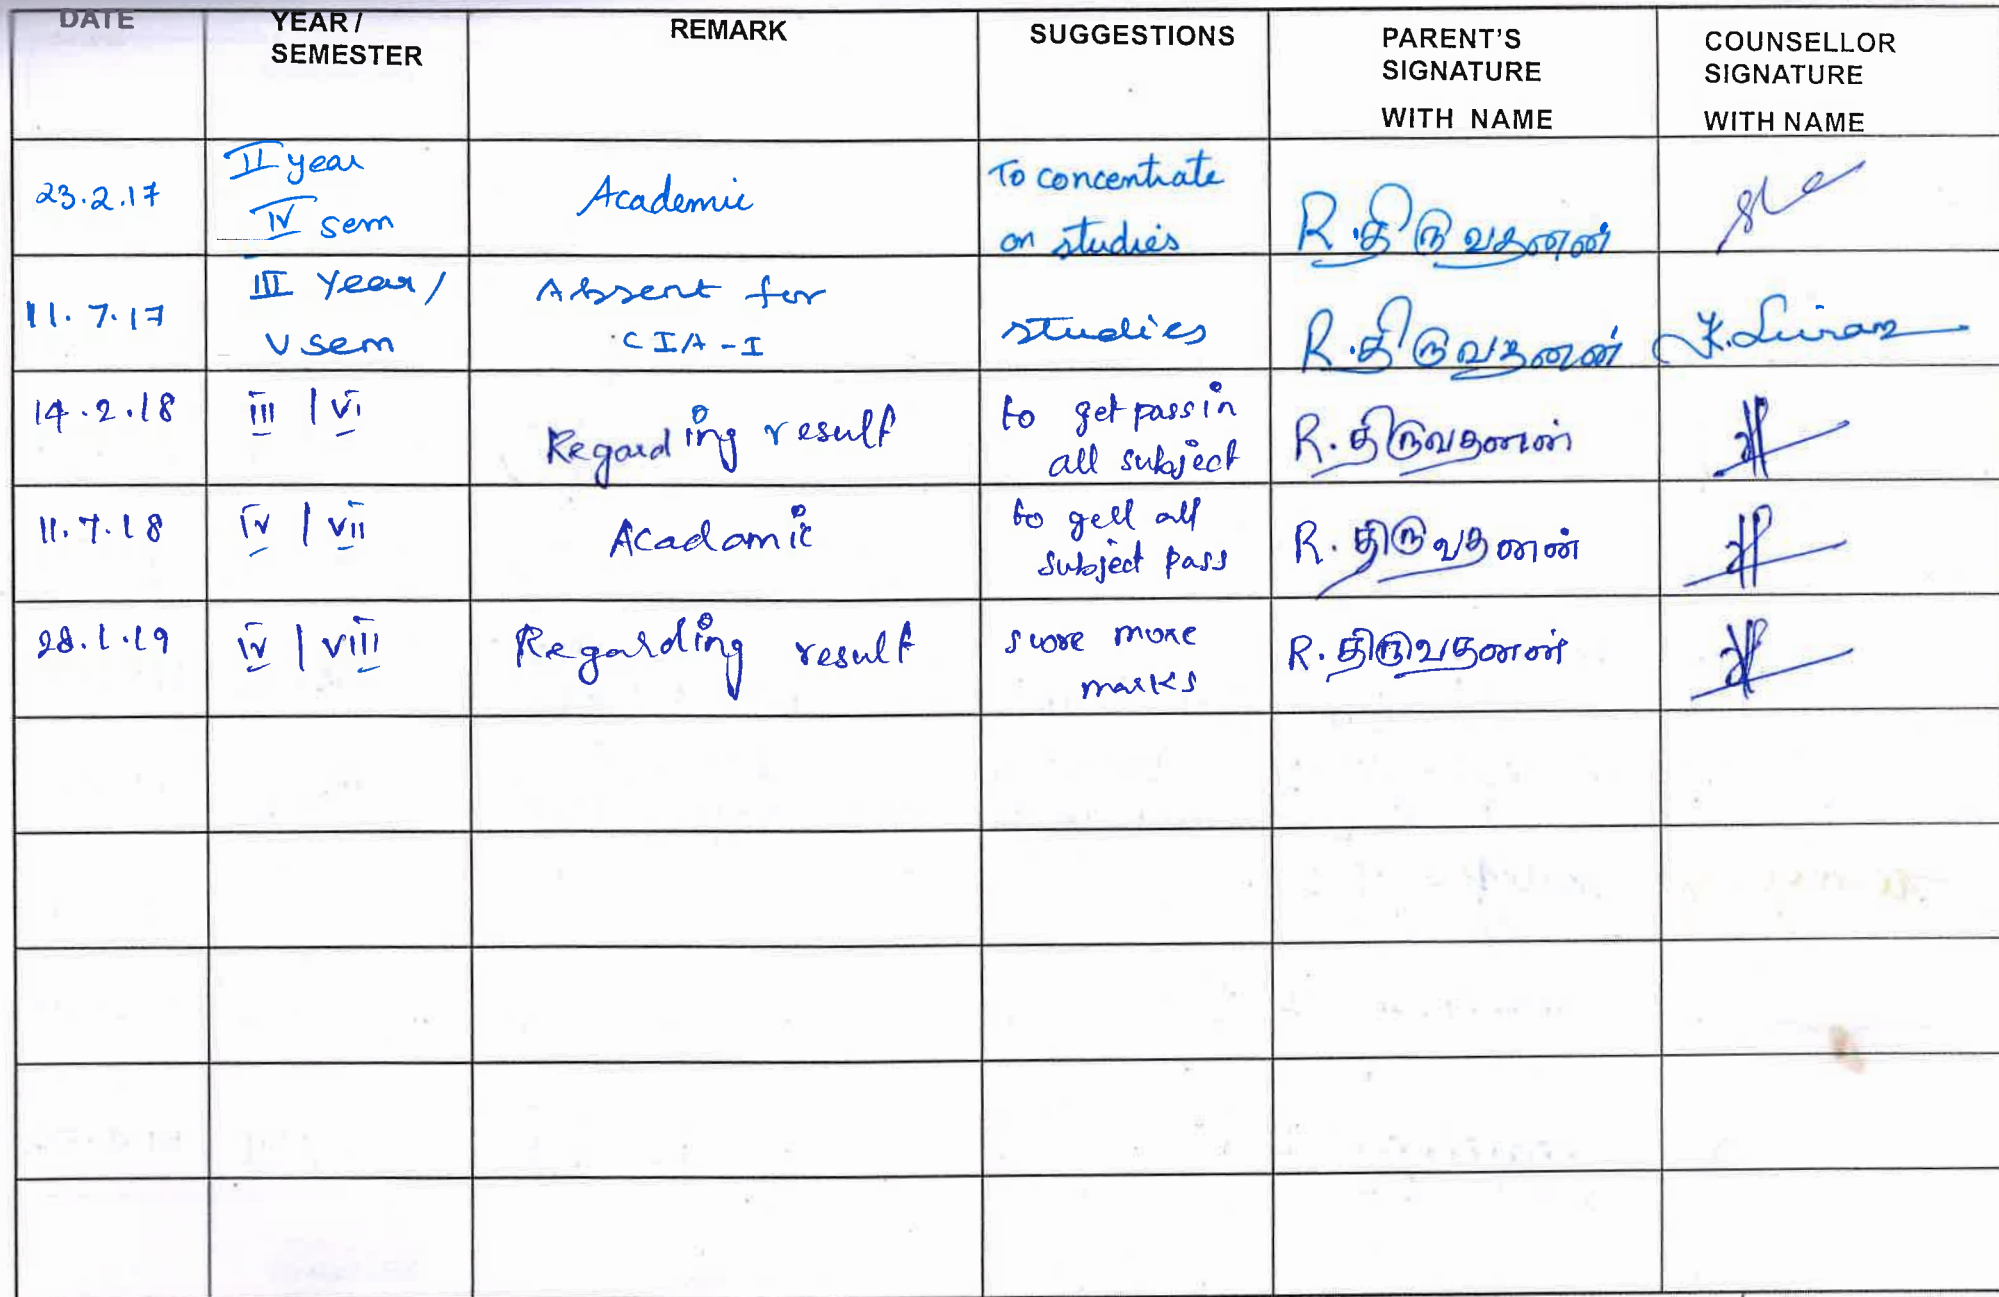 DATE
YEAR /
SEMESTER
REMARK
SUGGESTIONS
PARENT'S
SIGNATURE
WITH NAME
COUNSELLOR
SIGNATURE
WITH NAME
23.2.17
II year
IV sem
Academic
To concentrate
on studies
R.திருவதனன்
11.7.17
III Year /
V sem
Absent for
CIA-I
studies
R.திருவதனன்
14.2.18
iii | vi
Regarding result
to get pass in
all subject
R.திருவதனன்
11.7.18
iv | vii
Acadamic
to gell all
subject pass
R.திருவதனன்
28.1.19
iv | viii
Regarding result
score more
marks
R.திருவதனன்